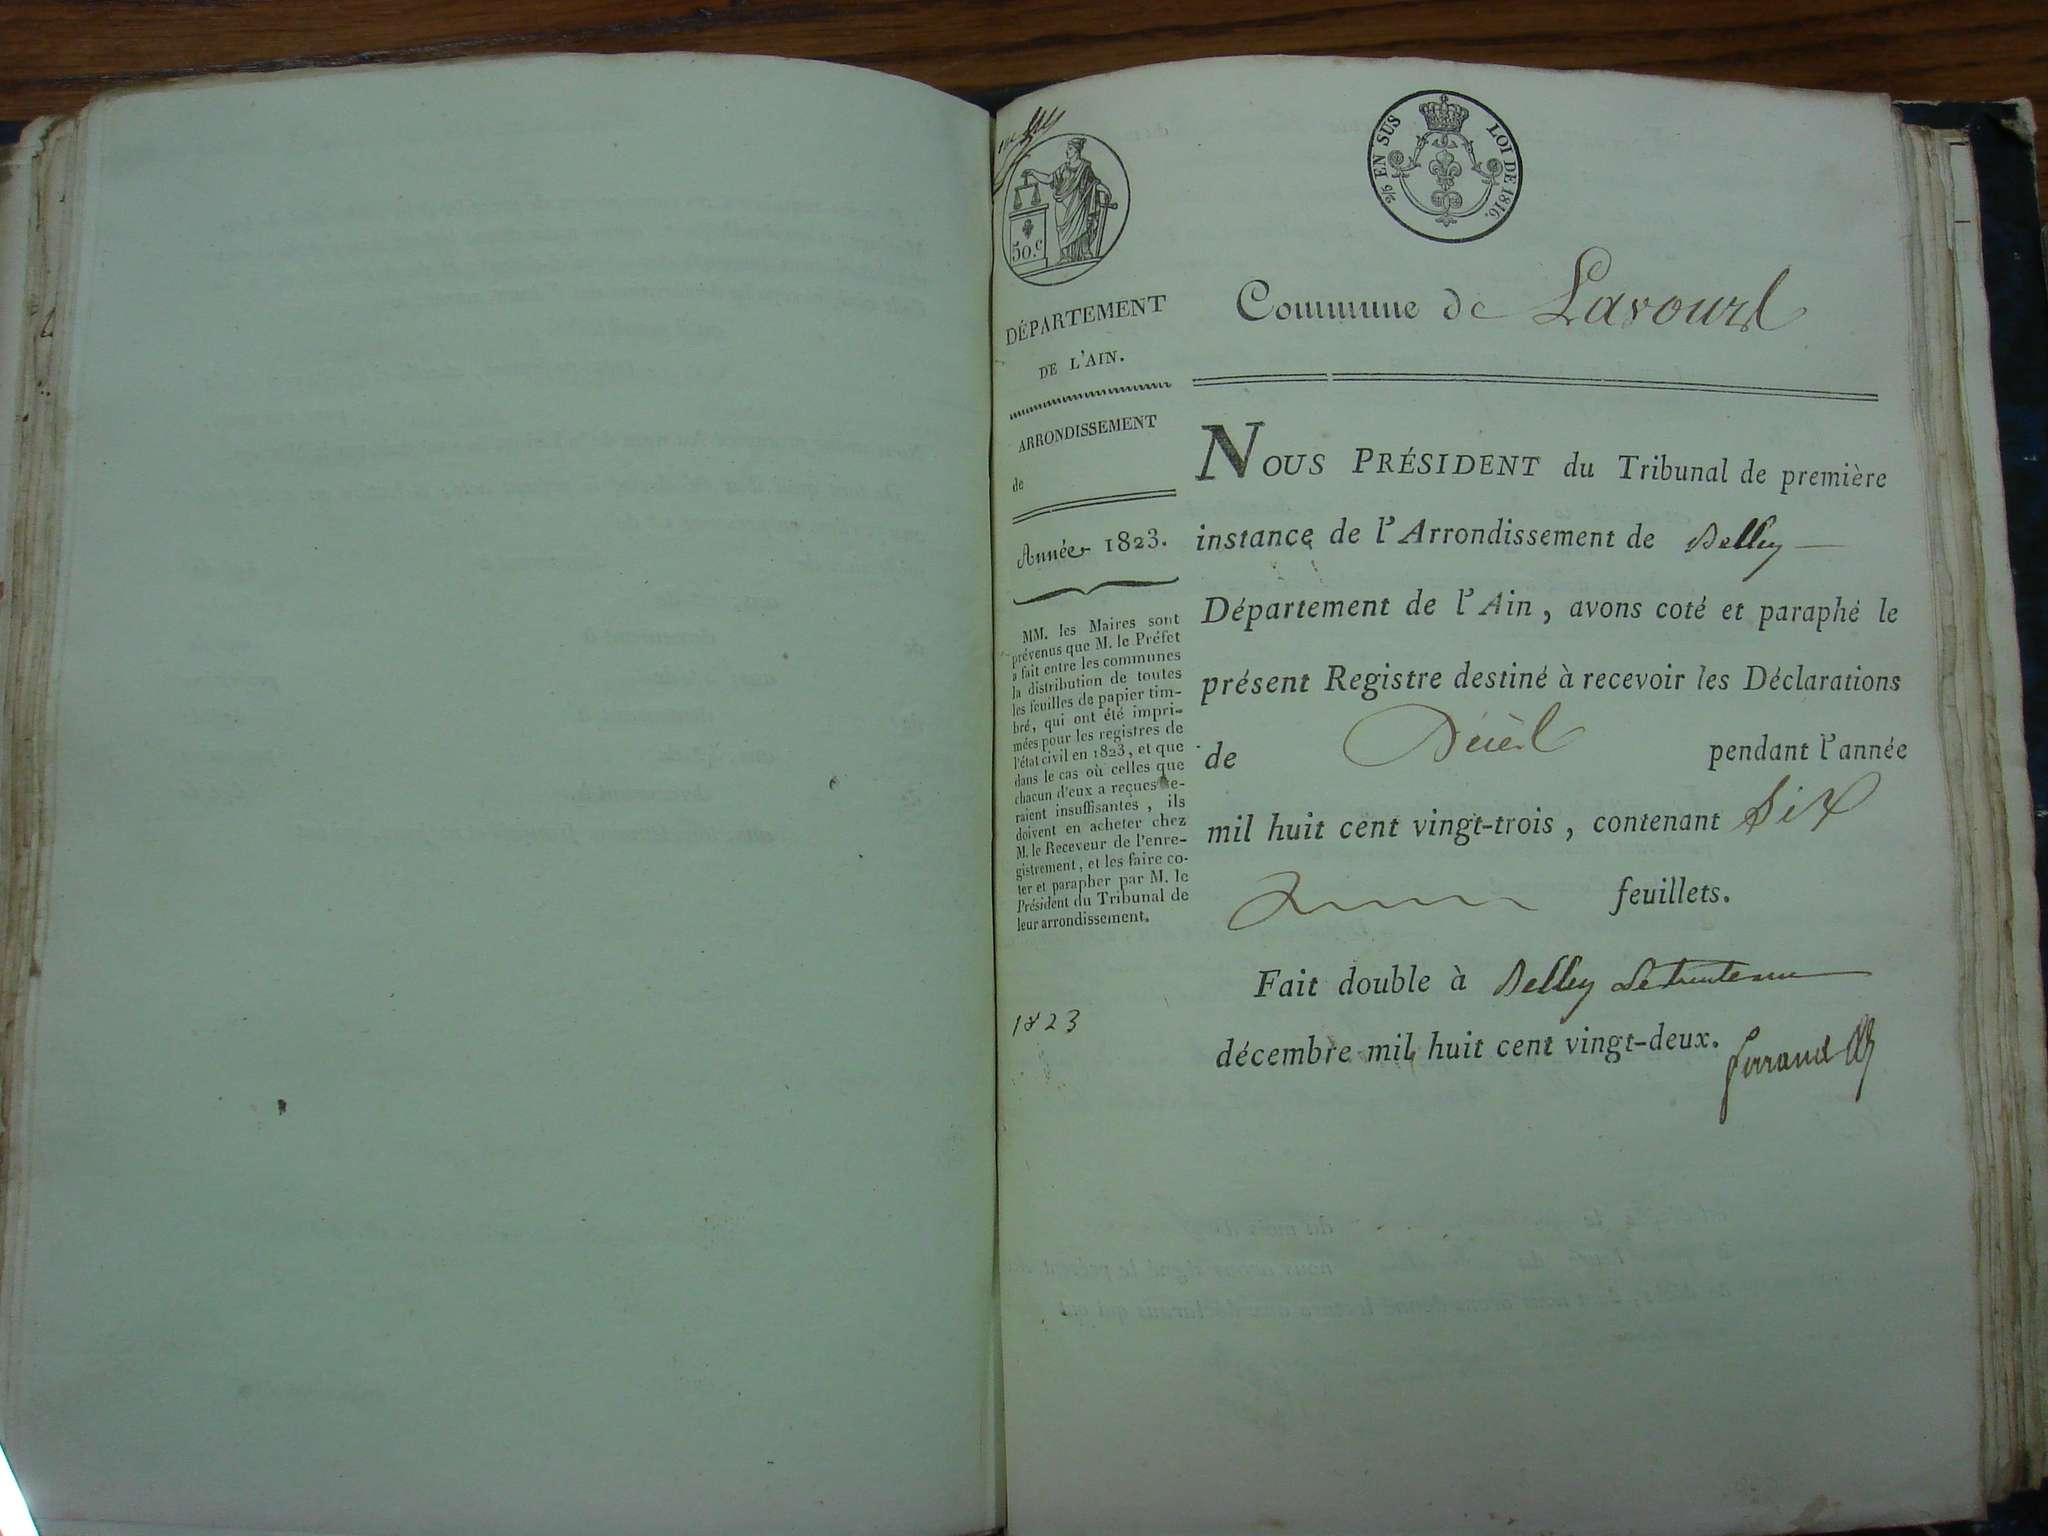 50.c
2/5 EN SUS LOI DE 1816.
DÉPARTEMENT
DE L'AIN.
ARRONDISSEMENT
de
Année 1823.
MM. les Maires sont
prévenus que M. le Préfet
a fait entre les communes
la distribution de toutes
les feuilles de papier tim-
bré, qui ont été impri-
mées pour les registres de
l'état civil en 1823, et que
dans le cas où celles que
chacun d'eux a reçues se-
raient insuffisantes, ils
doivent en acheter chez
M. le Receveur de l'enre-
gistrement, et les faire co-
ter et parapher par M. le
Président du Tribunal de
leur arrondissement.
1823
Commune de Lavours
NOUS PRÉSIDENT du Tribunal de première
instance de l'Arrondissement de Belley
Département de l'Ain, avons coté et paraphé le
présent Registre destiné à recevoir les Déclarations
de Décès pendant l'année
mil huit cent vingt-trois, contenant Six
feuillets.
Fait double à Belley le trente un
décembre mil huit cent vingt-deux.